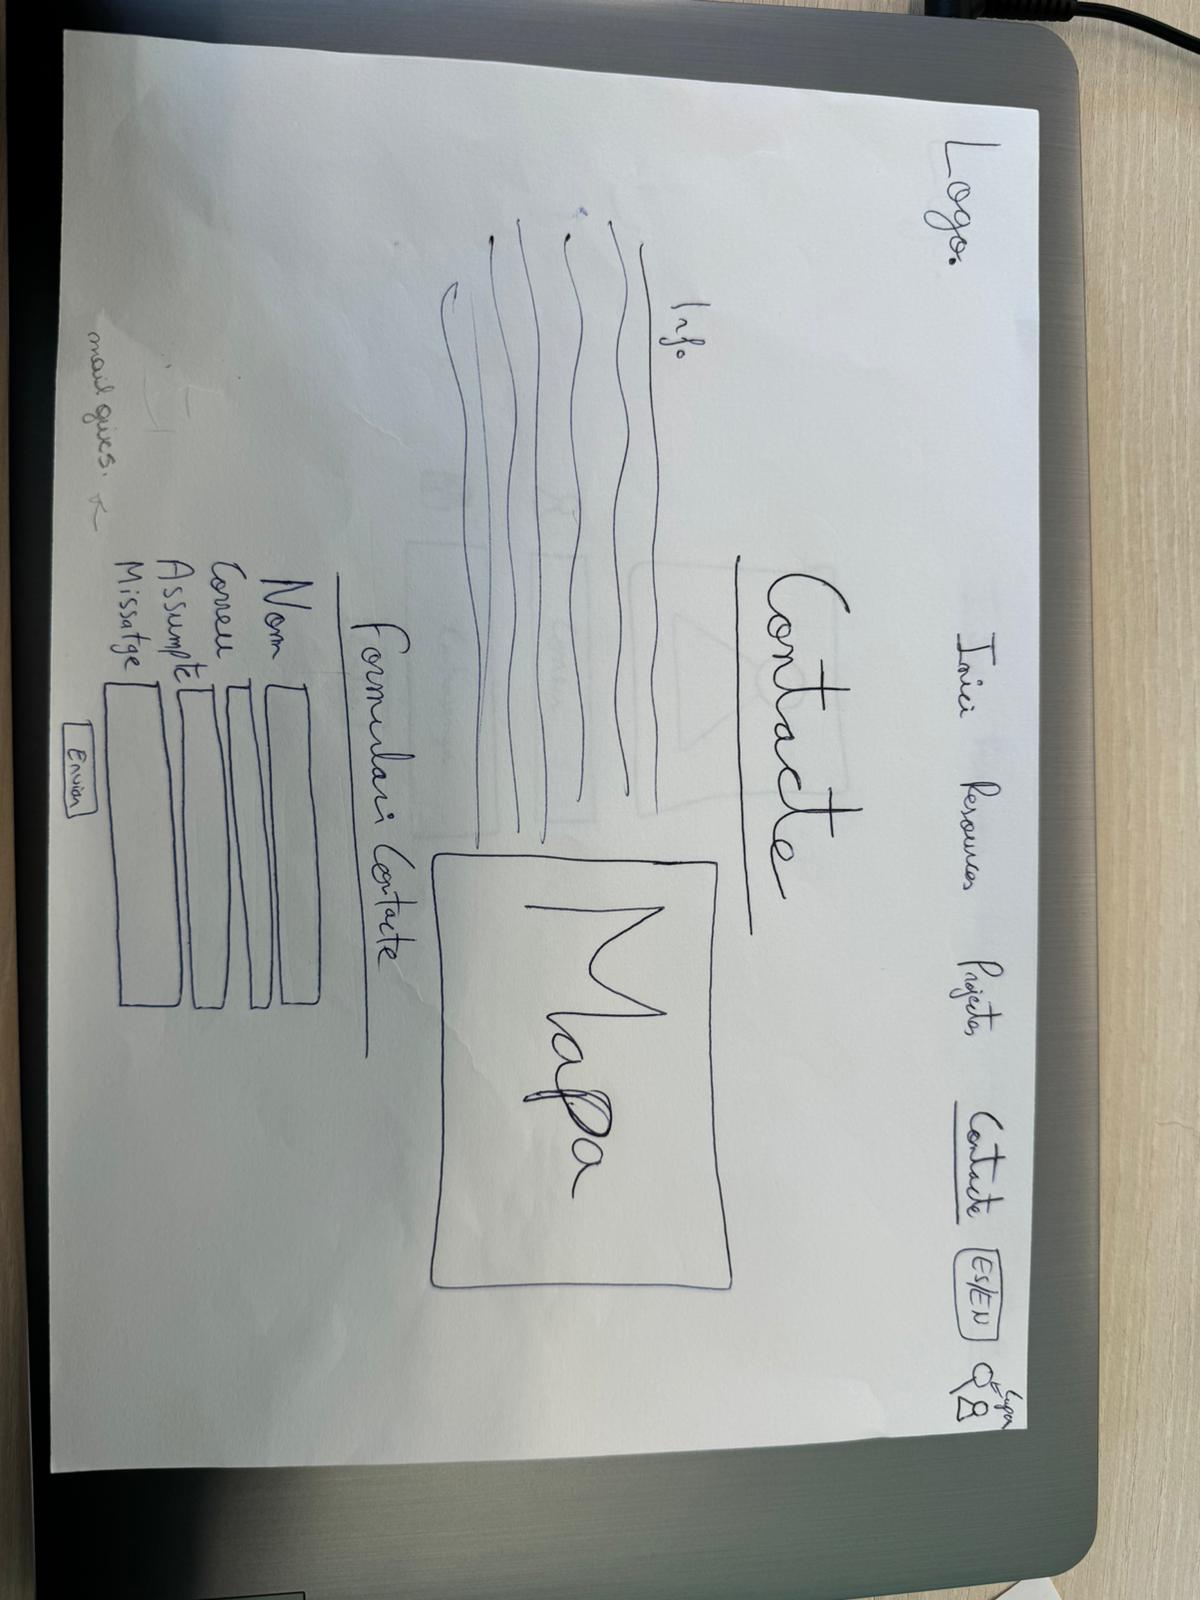 Logo.
Inici Resources Projectes Contacte ES/EN
Lupa
Contacte
Info
Mapa
Formulari Contacte
Nom
Correu
Assumpte
Missatge
Enviar
mail